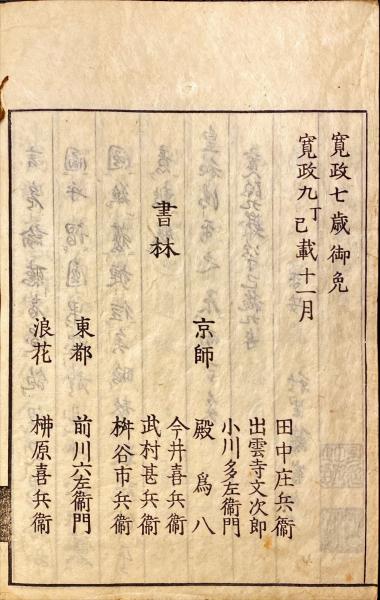 寬政七歳御免
寬政九丁巳載十一月
書林
京師
田中庄兵衞
出雲寺文次郎
小川多左衞門
殿為八
今井喜兵衞
武村甚兵衞
桝谷市兵衞
東都
前川六左衞門
浪花
柳原喜兵衞